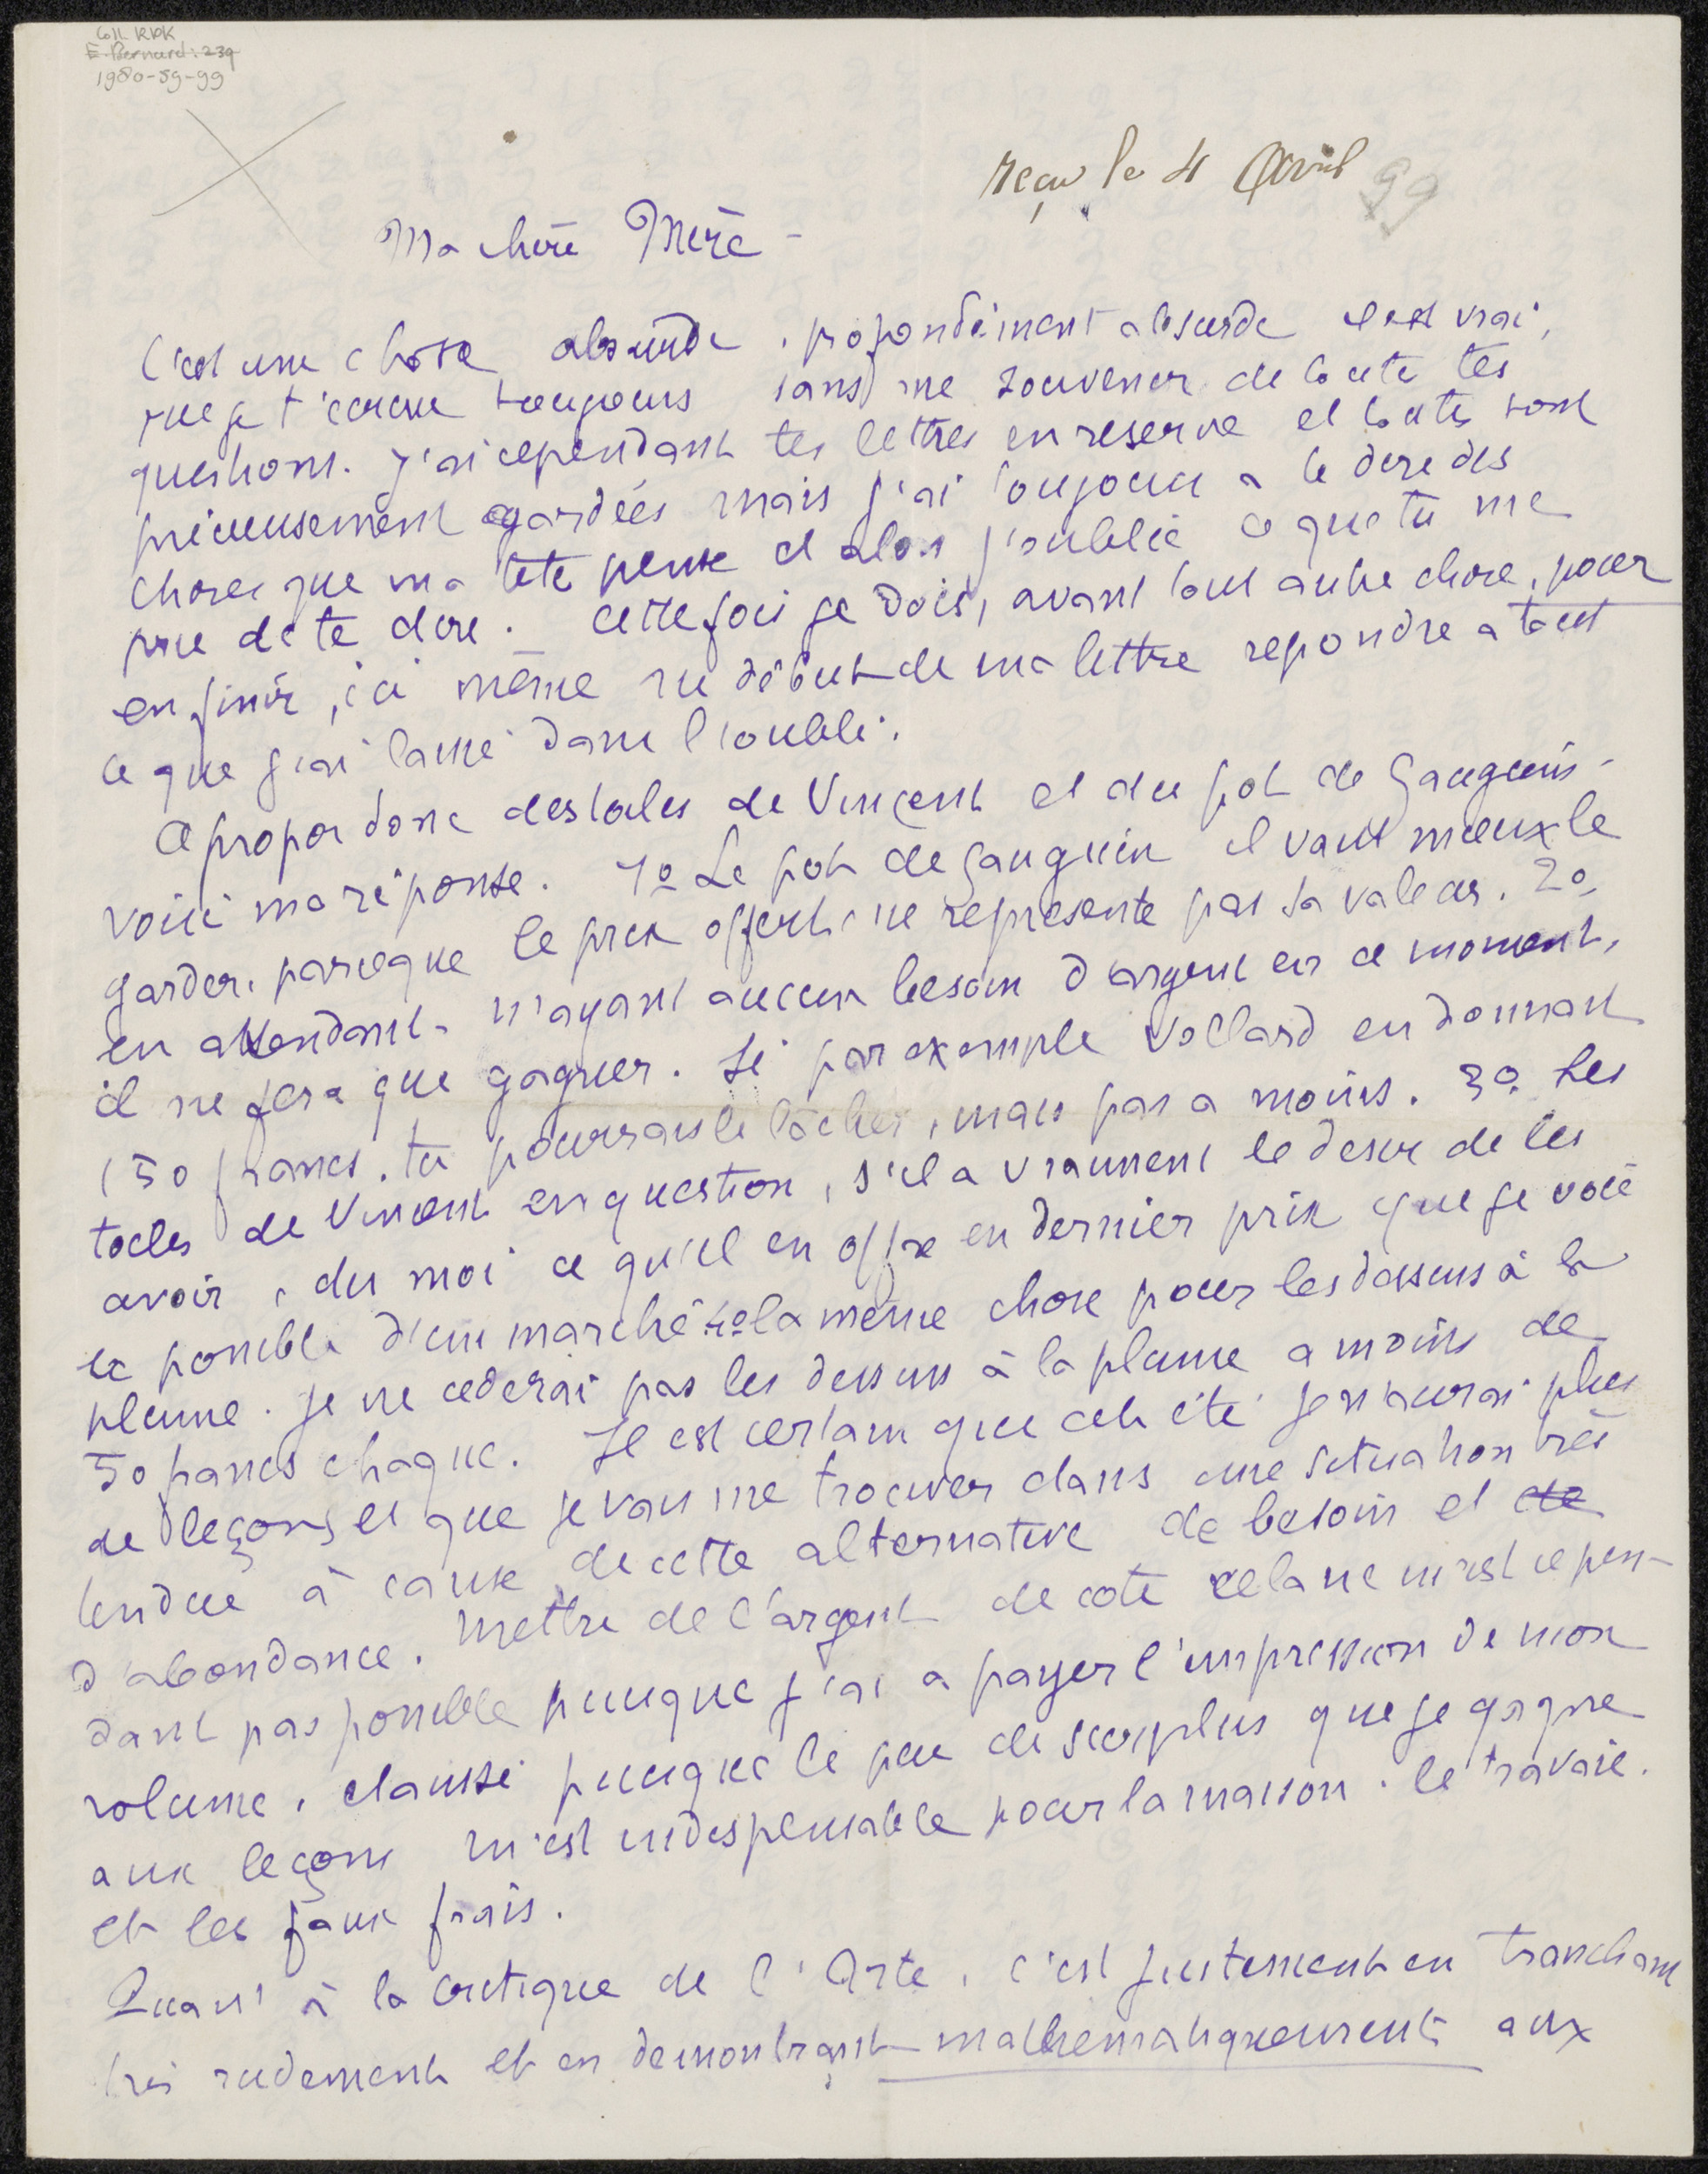 Coll. RPK
E. Bernard: 239
1980-59-99
reçu le 4 Avril 99
Ma chère Mère -
C'est une chose absurde, profondément absurde il est vrai,
que je t'écrive toujours sans me souvenir de toute tes
questions. J'ai cependant tes lettres en reserve et toutes sont
précieusement gardées mais j'ai toujours a te dire des
choses que ma tête pense et alors j'oublie ce que tu me
prie de te dire. Cette fois je dois, avant tout autre chose, pour
en finir, ici même au début de ma lettre repondre a tout
ce que j'ai laissé dans l'oubli.
A propos donc des toiles de Vincent et du pot de Gauguin -
voici ma réponse. 1o Le pot de Gauguin il vaut mieux le
garder, parceque le prix offert ne represente pas sa valeur. 2o
en attendant - n'ayant aucun besoin d'argent en ce moment,
il ne fera que gagner. Si par exemple Vollard en donnait
150 francs, tu pourrais le lâcher, mais pas a moins. 3o Les
toiles de Vincent en question, s'il a vraiment le desir de les
avoir, dis moi ce qu'il en offre en dernier prix que je voie
la possibl. d'un marché 4o la même chose pour les dessins à la
plume. Je ne cederai pas les dessins à la plume a moins de
50 francs chaque. Il est certain que cet été je n'aurai plus
de leçons et que je vais me trouver dans une situation très
tendue à cause de cette alternative de besoin et de
d'abondance. Mettre de l'argent de coté cela ne m'est cepen-
dant pas possible puisque j'ai a payer l'impression de mon
volume, et aussi puisque le peu de surplus que je gagne
aux leçons m'est indispensable pour la maison, le travail.
et les faux frais.
Quant à la critique de l'Arte, c'est justement en tranchant
très rudement et en demontrant mathematiquement aux